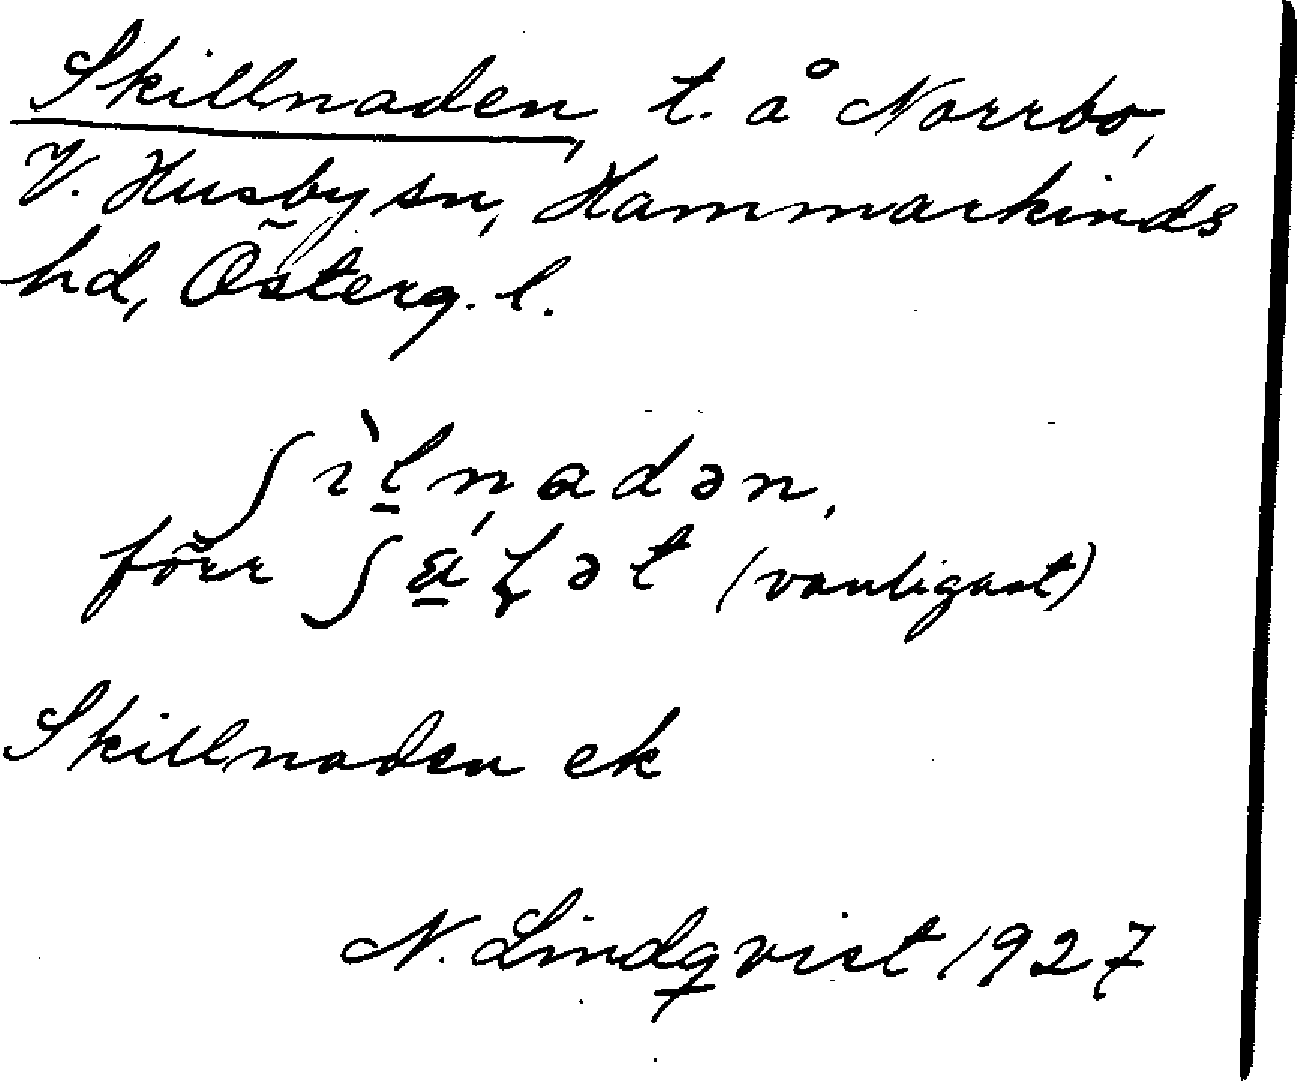 Skillnaden, t. å Norrbo,
V. Husby sn, Hammarkinds
hd, Österg. l.
ʃìl̠nadən,
förr ʃá̠ɽət (vanligast)
Skillnaden ek
N. Lindqvist 1927